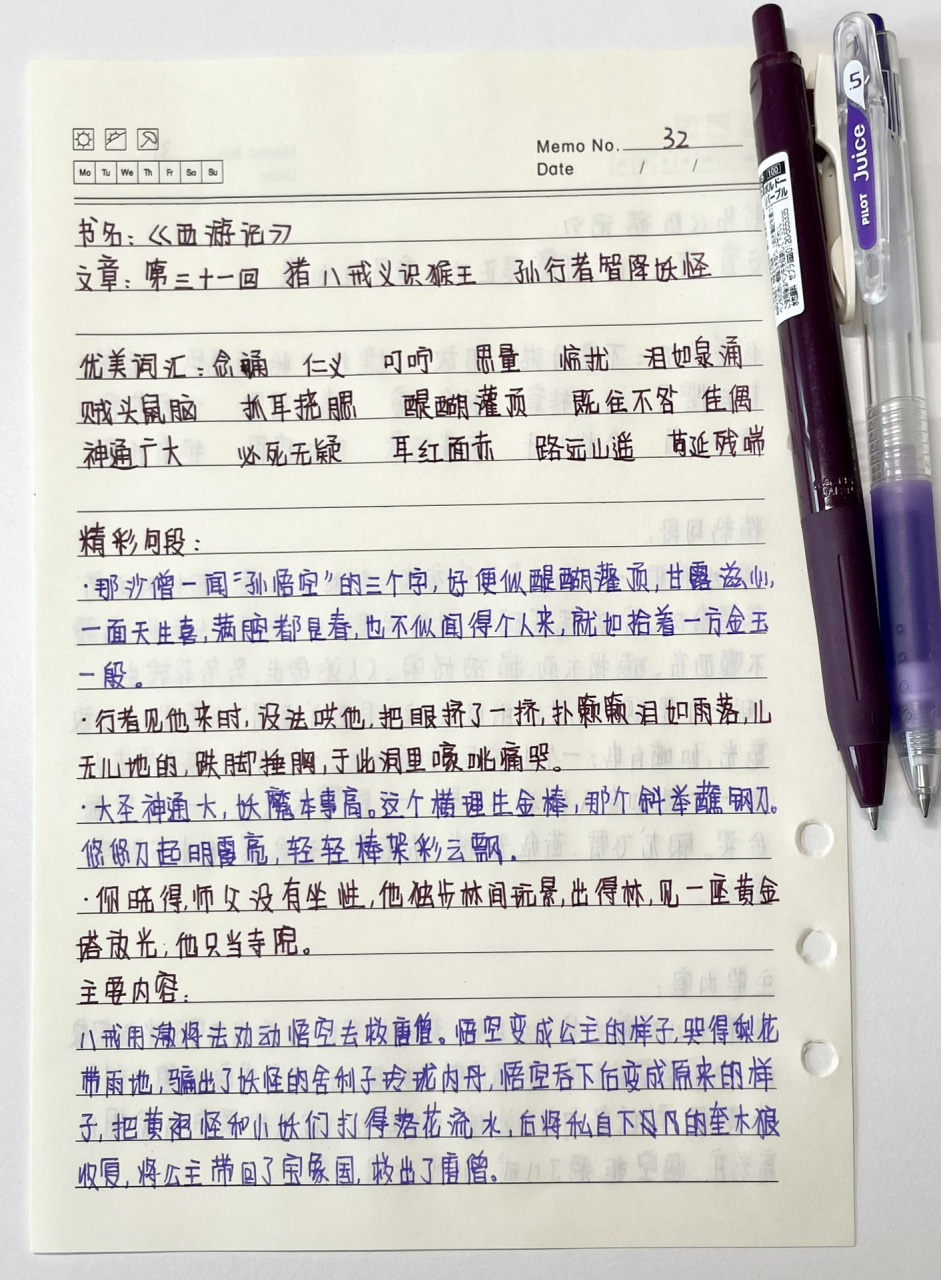 Memo No. 32
Mo Tu We Th Fr Sa Su
Date / /
书名:《西游记》
文章:第三十一回 猪八戒义识猴王 孙行者智降妖怪
优美词汇:念诵 仁义 叮咛 思量 惊扰 泪如泉涌
贼头鼠脑 抓耳挠腮 醍醐灌顶 既往不咎 佳偶
神通广大 必死无疑 耳红面赤 路远山遥 苟延残喘
精彩句段:
·那沙僧一闻“孙悟空”的三个字,好便似醍醐灌顶,甘露滋心,
一面天生喜,满腔都是春,也不似闻得个人来,就如拾着一方金玉
一般。
·行者见他来时,设法哄他,把眼挤了一挤,扑簌簌泪如雨落,儿
天儿地的,跌脚捶胸,于此洞里嚎咷痛哭。
·大圣神通大,妖魔本事高。这个横理生金棒,那个斜举蘸钢刀。
悠悠刀起明霞亮,轻轻棒架彩云飘。
·你晓得,师父没有坐性,他独步林间玩景,出得林,见一座黄金
塔放光,他只当寺院。
主要内容:
八戒用激将法劝动悟空去救唐僧。悟空变成公主的样子,哭得梨花
带雨地,骗出了妖怪的舍利子玲珑内丹,悟空吞下后变成原来的样
子,把黄袍怪和小妖们打得落花流水,后将私自下凡的奎木狼
收复,将公主带回了宝象国,救出了唐僧。
PILOT Juice .5